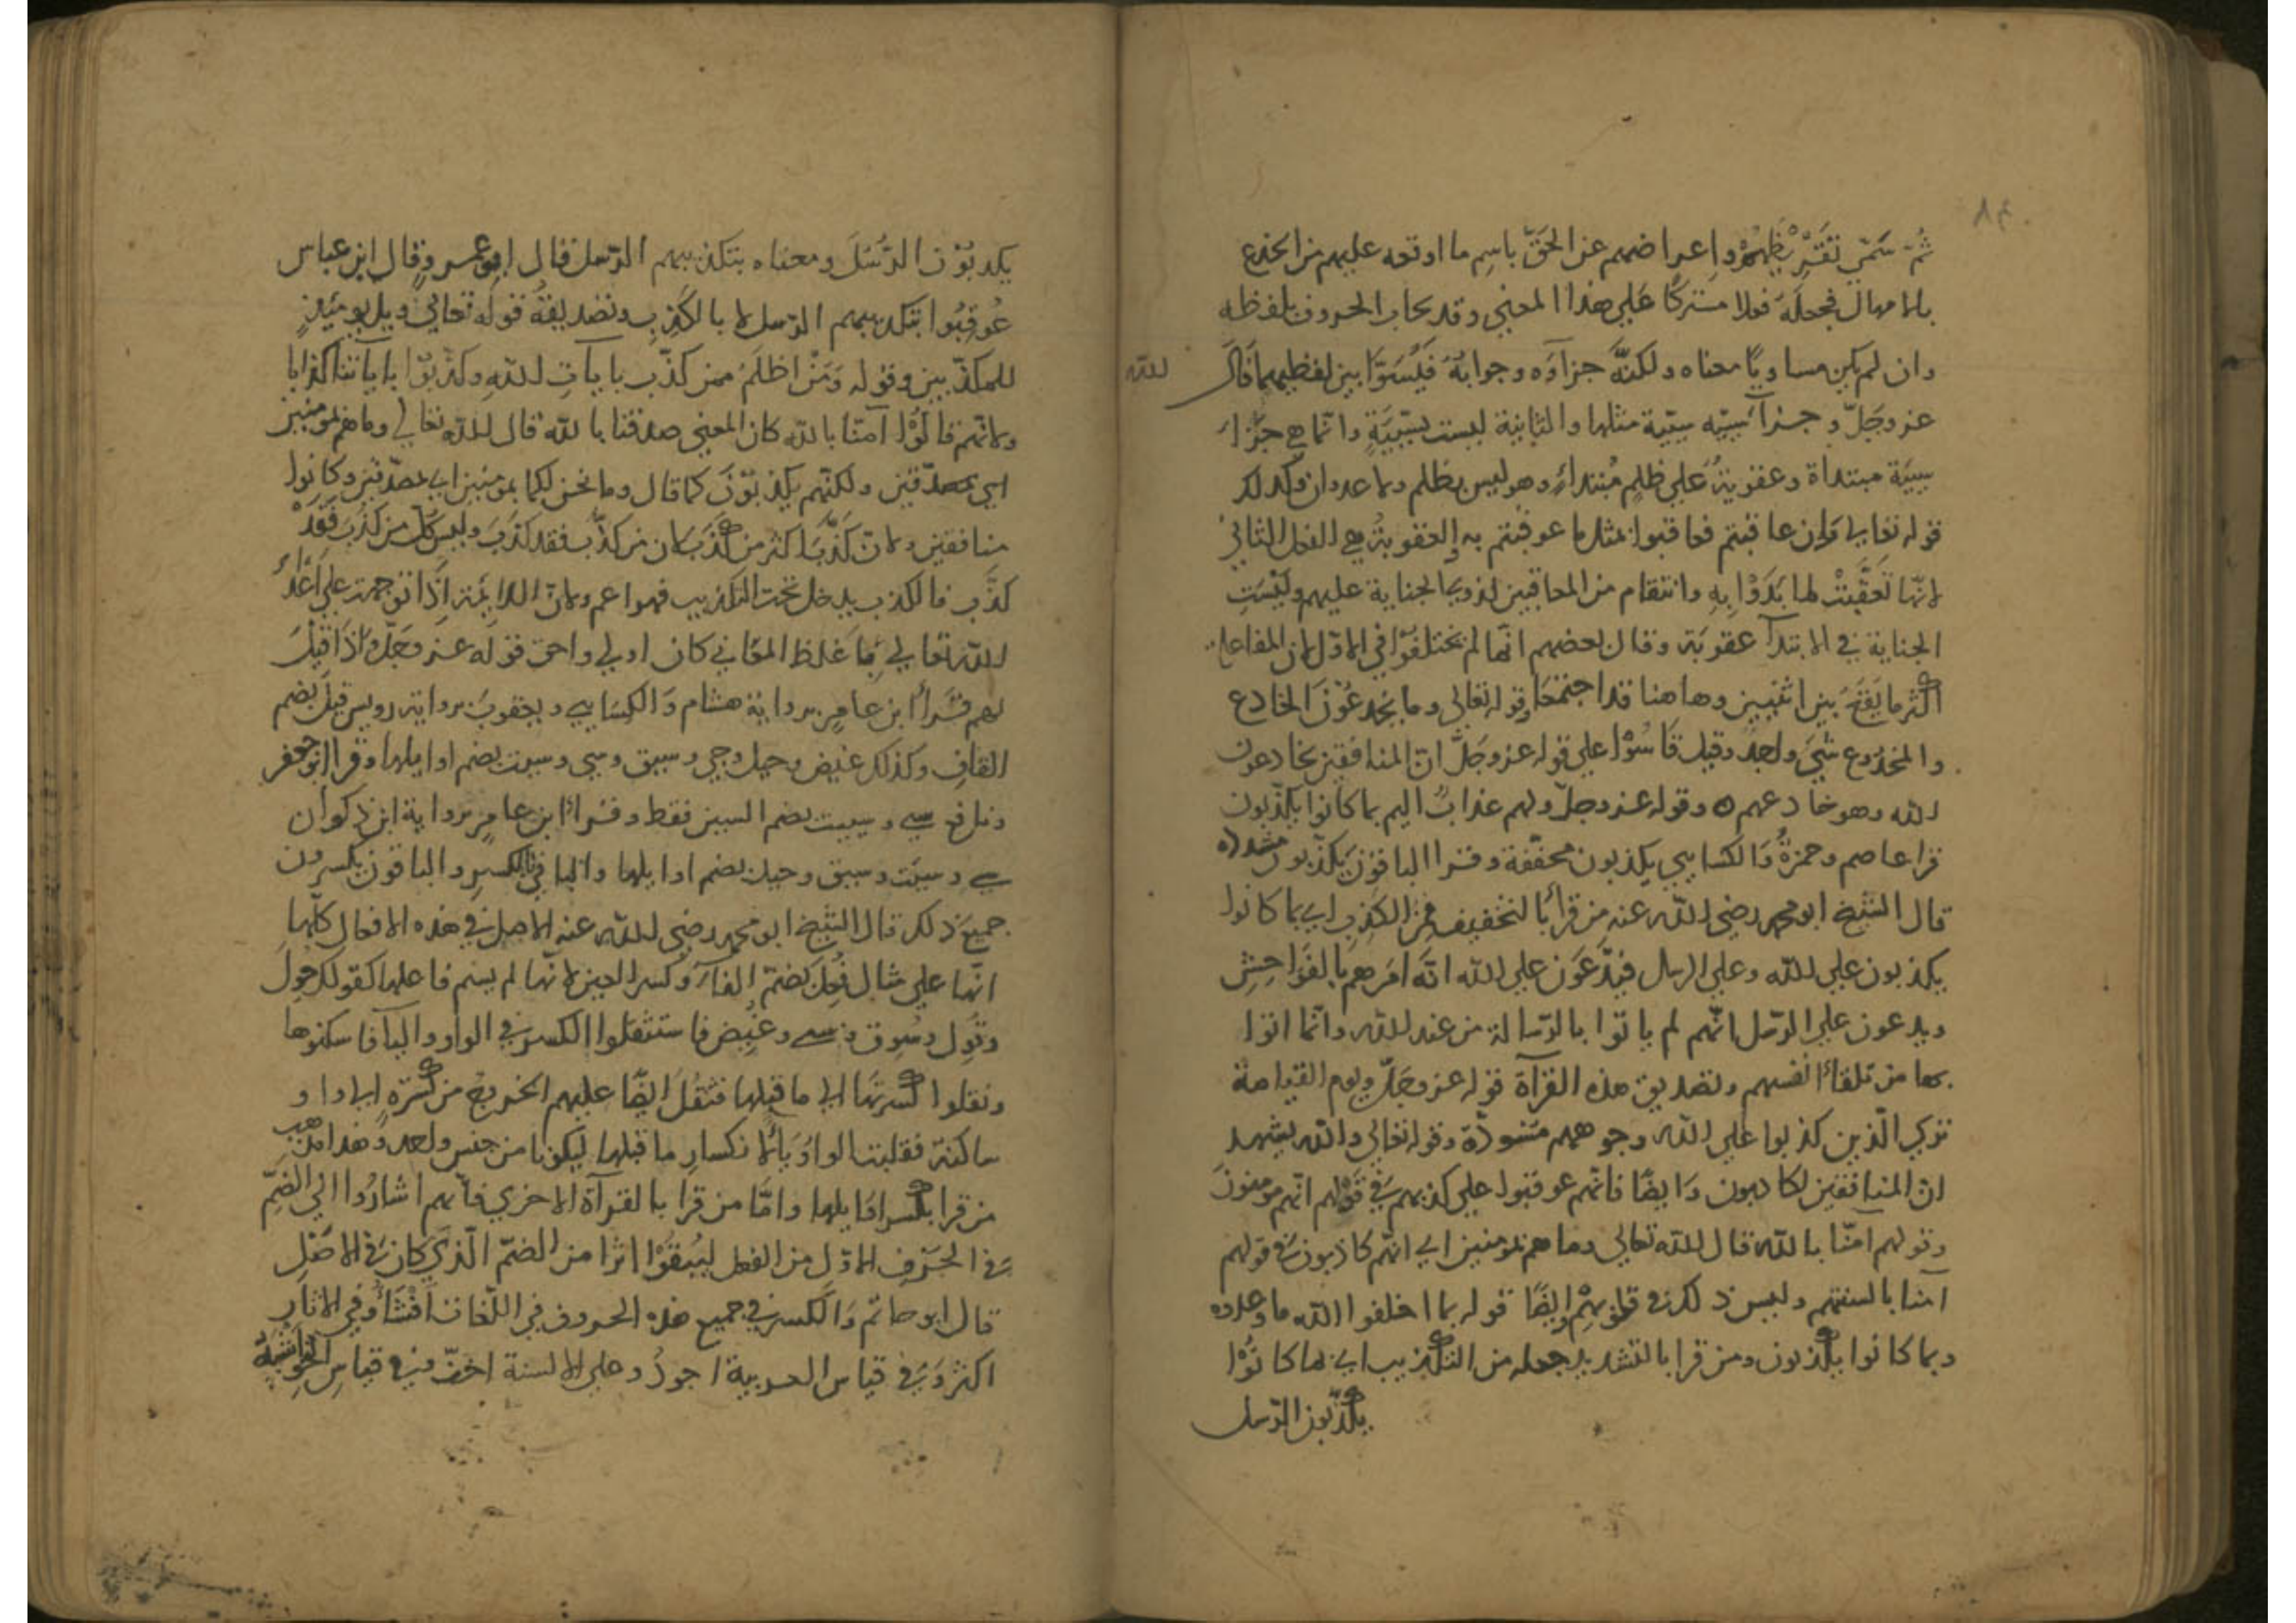 ثُمّ سَمّي تقَرّيظهم واعراضهم عن الحقّ باسم ما اوقعه عليهم من الخدع
بالامهال فجعله فعلا مشتركا علي هذا المعني وقد يجاب الحروف بلفظه
وان لم يكن مساويًا معناه ولكنَّه جزاؤه وجوابهُ فيُسَوّا بين لفظيهما قال الله
عز وجَلّ وجزآ سيئه سيئة مثلها والثانية ليست بسَيّيَةٍ وانّما هي جزا
سيية مبتداة وعقوبة علي ظلم مبتدا وهو ليس بظلم ولا عدوان وكذلك
قوله تعالي وان عاقبتم فعاقبوا بمثل ما عوقبتم به والعقوبة هي الفعل الثاني
لانّها تعقّبت لما بَدَوْا بِهِ وانتقام من المعاقبين لذوي الجناية عليهم وليست
الجناية في الابتدآ عقوبة وقال بعضهم انّما لم يختلفوا في الاوّل لان المفاعلة
اكثر ما يقع بين اثنيين وهاهنا قد اجتمعا وقوله تعالي وما يخدعون الخادع
والمخدوع شيء واحد وقيل قاسوا علي قوله عز وجلّ انّ المنافقين يخادعون
الله وهو خادعهم ٥ وقوله عز وجلّ ولهم عذابٌ اليم بما كانوا يكذّبون
قرا عاصم وحمزةُ والكسايي يكذبون مخفّفة وقرا الباقون يكذّبون مشدده
قال الشيخ ابو محمد رضي الله عنه من قرا بالتخفيف فمن الكذِب اي بما كانوا
يكذبون علي الله وعلي الرسل فيدّعون علي الله انّه امرهم بالفواحش
ويدعون علي الرّسل انّهم لم ياتوا بالرّسالة من عند الله وانّما اتوا
بها من تلقاء انفسهم وتصديق هذه القرآة قوله عز وجلّ ويوم القيامة
تري الّذين كذبوا علي الله وجوههم مسودّة وقوله تعالي والله يشهد
انّ المنافقين لكاذبون وايضًا فانّهم عوقبوا علي كذبهم في قولهم انّهم مومنون
وقولهم آمنّا بالله قال الله تعالي وما هم بمومنين اي انّهم كاذبون في قولهم
آمنا بالسنتهم وليس ذلك في قلوبهم وايضًا قوله بما اخلفوا الله ما وعدوه
وبما كانوا يكذبون ومن قرا بالتشديد جعله من التكذيب اي بما كانوا
يكذّبون الرّسل
يكذبوْن الرُّسُلَ ومعناه بتكذيبهم الرّسل فقال ابو عمرو وقال ابن عباس
عُوقِبُوا بتكذيبهم الرّسل لا بالكذِب وتصديقهُ قوله تعالي ويل يومئذٍ
للمكذّبين وقوله ومن اظلم ممن كذّب بايات الله وكذّبوا باياتنا كذابا
ولانّهم قالوا آمنّا بالله كان المعني صدقنا بالله قال الله تعالي وما هم بمومنين
اي بمصدّقين ولكنّهم يكذبون كما قال وما نحن لكما بمومنين اي بمصدّقين وكانوا
منافقين ولانّ كذّب اكثر من كذب لان من كذّب فقد كذب وليس كل من كذب فقد
كذّب فالكذب يدخل تحت التكذيب فهو اعم ولانّ اللايمة اذا توجهت علي اعدا
الله تعالي بما غلظ المعاني كان اولي واحق قوله عز وجلّ واذا قيل
لهم قرا ابن عامر برواية هشام والكسايي ويعقوب برواية رويس قيل بضم
القاف وكذلك غيض وحيل وجي وسيق وسي وسيت بضم اوايلها وقرا ابو جعفر
ونافع سي وسييت بضم السين فقط وقرا ابن عامر برواية ابن ذكوان
سي وسيت وسيق وحيل بضم اوايلها والباقي بالكسر والباقون يكسرون
جميع ذلك قال الشيخ ابو محمد رضي الله عنه الاصل في هذه الافعال كلّها
انّها علي مثال فُعِلَ بضمّ الفآ وكسر العين لانّها لم يسم فاعلها كقولك حول
وقُوِل وسُوِق وسي وغُيِض فاستثقلوا الكسر في الواو واليآ فاسكنوها
ونقلوا كسرتها الي ما قبلها فثقل ايضًا عليهم الخروج من كسرة الي واو
ساكنة فقلبت الواو يا لانكسار ما قبلها ليكونا من جنس واحد وهذا مذهب
من قرا بكسر اوايلها وامّا من قرا بالقرآة الاخري فانّهم اشاروا الي الضمّ
في الحرف الاوّل من الفعل ليبقوا اثرا من الضمّ الّذي كان في الاصل
قال ابو حاتم والكسر في جميع هذه الحروف في اللّغات افشا وفي الاثار
اكثر وفي قياس العربية اجود وعلي الالسنة اخفّ وفي قياس